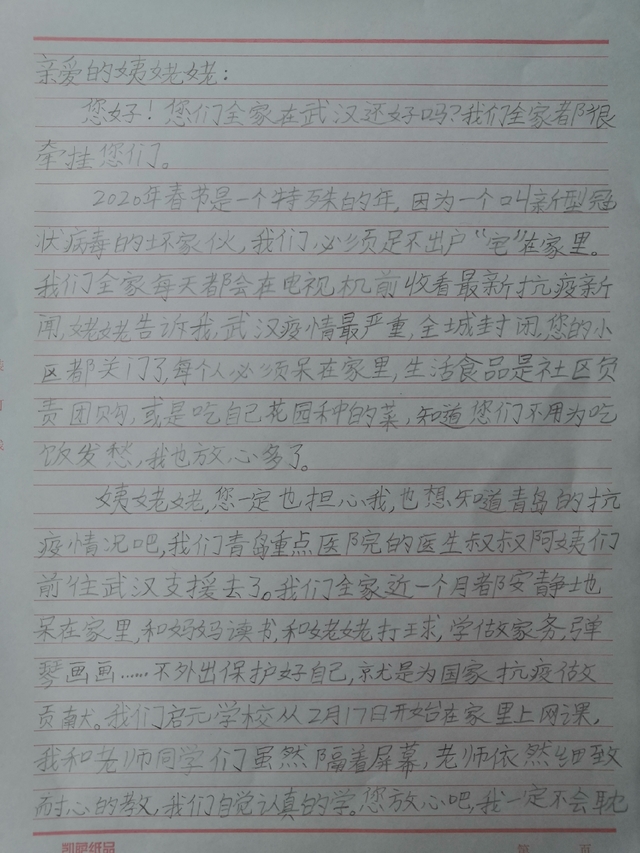 亲爱的姨姥姥：
您好！您们全家在武汉还好吗？我们全家都很
牵挂您们。
2020年春节是一个特殊的年，因为一个叫新型冠
状病毒的坏家伙，我们必须足不出户“宅”在家里。
我们全家每天都会在电视机前收看最新抗疫新
闻，姥姥告诉我，武汉疫情最严重，全城封闭，您的小
区都关门了，每个人必须呆在家里，生活食品是社区负
责团购，或是吃自己花园种的菜，知道您们不用为吃
饭发愁，我也放心多了。
姨姥姥，您一定也担心我，也想知道青岛的抗
疫情况吧，我们青岛重点医院的医生叔叔阿姨们
前往武汉支援去了。我们全家近一个月都安静地
呆在家里，和妈妈读书，和姥姥打球，学做家务，弹
琴画画……不外出保护好自己，就是为国家抗疫做
贡献。我们启元学校从2月17日开始在家里上网课，
我和老师同学们虽然隔着屏幕，老师依然细致
耐心的教，我们自觉认真的学。您放心吧，我一定不会耽
凯腾纸品
第 页